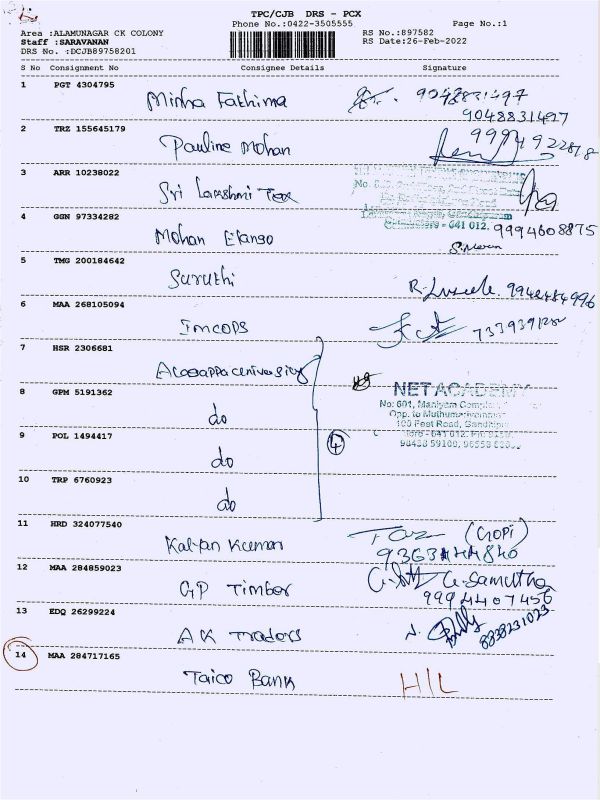 TPC/CJB DRS - PCX
Phone No.:0422-3505555
Page No.:1
Area :ALAMUNAGAR CK COLONY
RS No.:897582
Staff :SARAVANAN
RS Date:26-Feb-2022
DRS No. :DCJB89758201
S No Consignment No Consignee Details Signature
1 PGT 4304795
Minha Fathima 9048831497
9048831497
2 TRZ 155645179
Pauline Mohan
3 ARR 10238022
Sri Lakshmi Tex
641 012.
4 GGN 97334282
Mohan Elango 9994608875
5 TMG 200184642
Suruthi 9942484996
6 MAA 268105094
Imcops
7 HSR 2306681
Alagappa University
NET ACADEMY
8 GPM 5191362
No: 601, Maniyam
do
Opp. to
100 Feet Road,
9 POL 1494417
641 012.
do 4
98438 59100,
10 TRP 6760923
do
11 HRD 324077540
Kalyan Kumar (GOPI)
12 MAA 284859023
GP Timber G. Samutha
9994407456
13 EDQ 26299224
AK Traders 8838231023
14 MAA 284717165
Taico Bank H/L